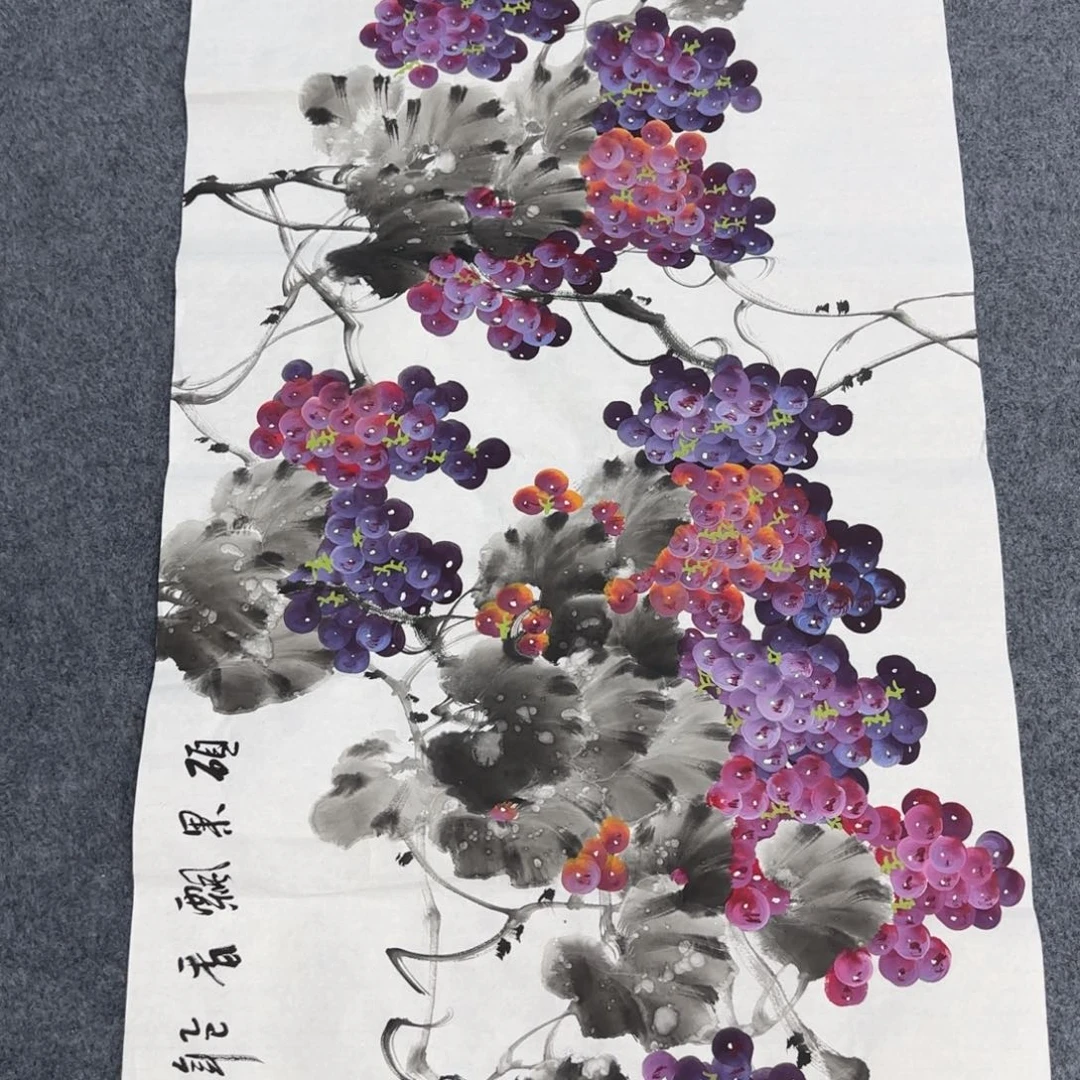 硕果飘香